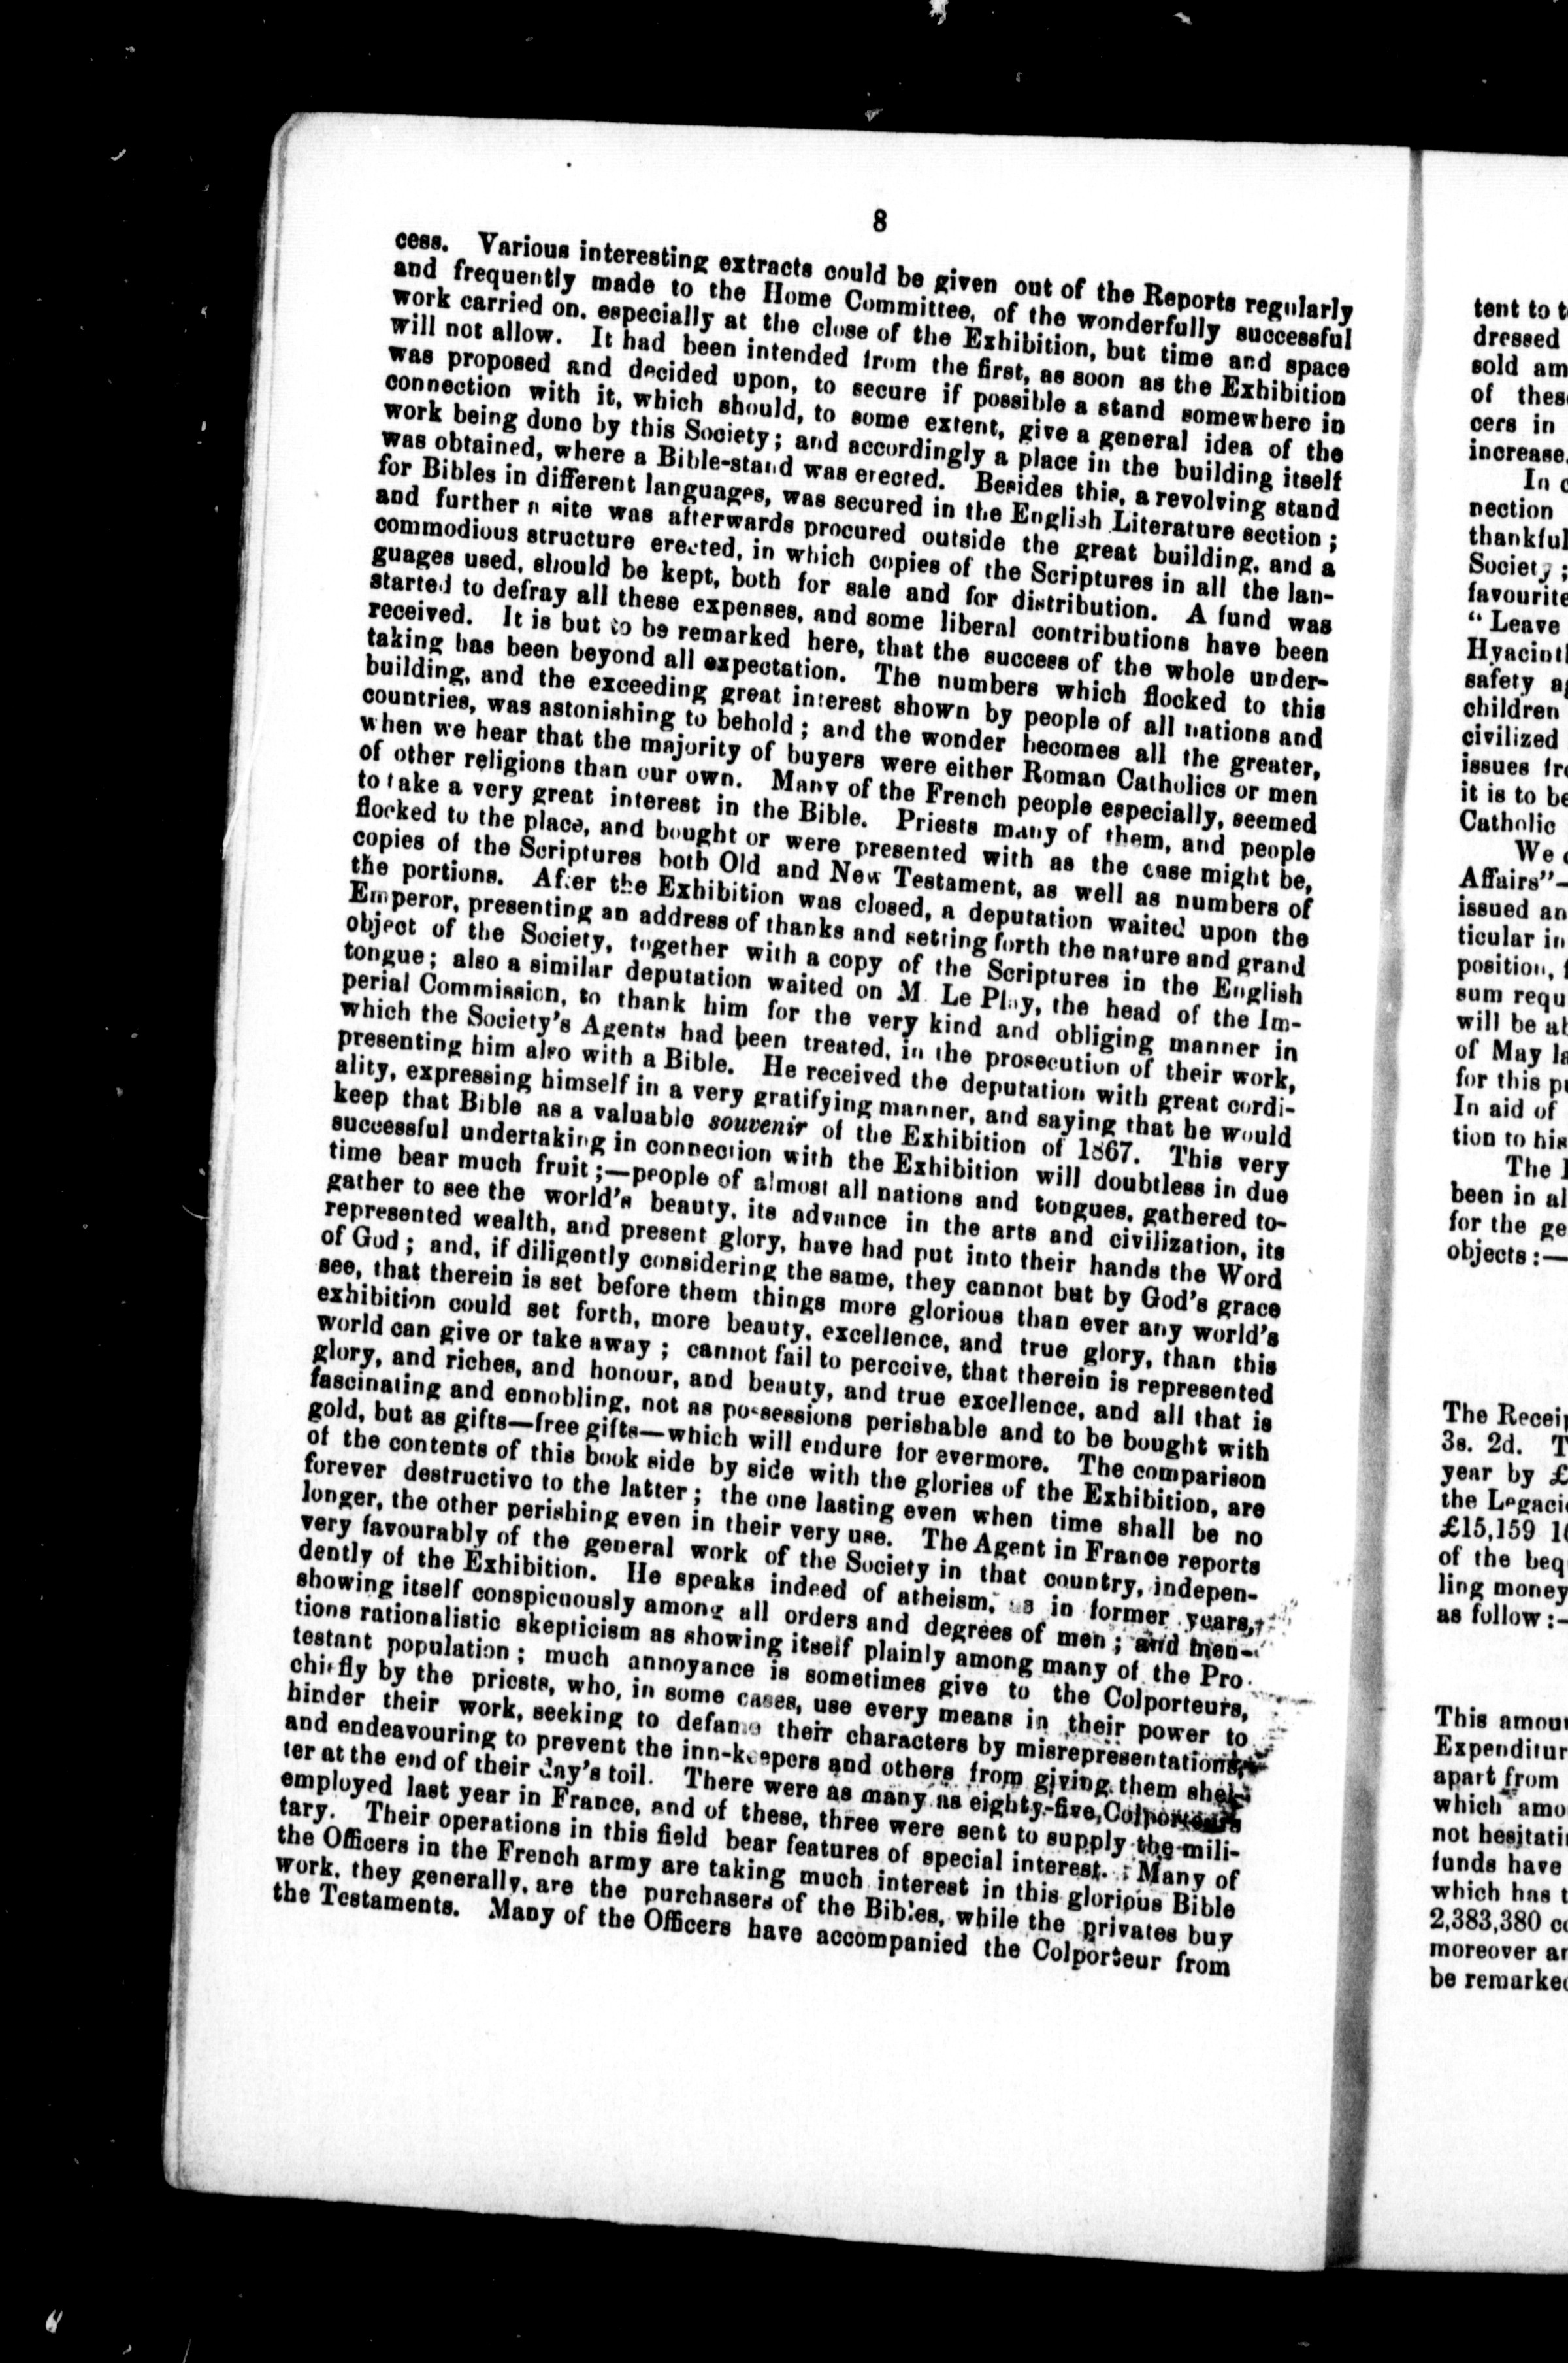 8
cess. Various interesting extracts could be given out of the Reports regularly
and frequently made to the Home Committee, of the wonderfully successful
work carried on, especially at the close of the Exhibition, but time and space
will not allow. It had been intended from the first, as soon as the Exhibition
was proposed and decided upon, to secure if possible a stand somewhere in
connection with it, which should, to some extent, give a general idea of the
work being done by this Society; and accordingly a place in the building itself
was obtained, where a Bible-stand was erected. Besides this, a revolving stand
for Bibles in different languages, was secured in the English Literature section;
and further a site was afterwards procured outside the great building, and a
commodious structure erected, in which copies of the Scriptures in all the lan-
guages used, should be kept, both for sale and for distribution. A fund was
started to defray all these expenses, and some liberal contributions have been
received. It is but to be remarked here, that the success of the whole under-
taking has been beyond all expectation. The numbers which flocked to this
building, and the exceeding great interest shown by people of all nations and
countries, was astonishing to behold; and the wonder becomes all the greater,
when we hear that the majority of buyers were either Roman Catholics or men
of other religions than our own. Many of the French people especially, seemed
to take a very great interest in the Bible. Priests many of them, and people
flocked to the place, and bought or were presented with as the case might be,
copies of the Scriptures both Old and New Testament, as well as numbers of
the portions. After the Exhibition was closed, a deputation waited upon the
Emperor, presenting an address of thanks and setting forth the nature and grand
object of the Society, together with a copy of the Scriptures in the English
tongue; also a similar deputation waited on M. Le Play, the head of the Im-
perial Commission, to thank him for the very kind and obliging manner in
which the Society's Agents had been treated, in the prosecution of their work,
presenting him also with a Bible. He received the deputation with great cordi-
ality, expressing himself in a very gratifying manner, and saying that he would
keep that Bible as a valuable souvenir of the Exhibition of 1867. This very
successful undertaking in connection with the Exhibition will doubtless in due
time bear much fruit;—people of almost all nations and tongues, gathered to-
gather to see the world's beauty, its advance in the arts and civilization, its
represented wealth, and present glory, have had put into their hands the Word
of God; and, if diligently considering the same, they cannot but by God's grace
see, that therein is set before them things more glorious than ever any world's
exhibition could set forth, more beauty, excellence, and true glory, than this
world can give or take away; cannot fail to perceive, that therein is represented
glory, and riches, and honour, and beauty, and true excellence, and all that is
fascinating and ennobling, not as possessions perishable and to be bought with
gold, but as gifts—free gifts—which will endure for evermore. The comparison
of the contents of this book side by side with the glories of the Exhibition, are
forever destructive to the latter; the one lasting even when time shall be no
longer, the other perishing even in their very use. The Agent in France reports
very favourably of the general work of the Society in that country, indepen-
dently of the Exhibition. He speaks indeed of atheism, as in former years,
showing itself conspicuously among all orders and degrees of men; and men-
tions rationalistic skepticism as showing itself plainly among many of the Pro-
testant population; much annoyance is sometimes give to the Colporteurs,
chiefly by the priests, who, in some cases, use every means in their power to
hinder their work, seeking to defame their characters by misrepresentations,
and endeavouring to prevent the inn-keepers and others from giving them shel-
ter at the end of their day's toil. There were as many as eighty-five, Colporteurs
employed last year in France, and of these, three were sent to supply the mili-
tary. Their operations in this field bear features of special interest. Many of
the Officers in the French army are taking much interest in this glorious Bible
work, they generally, are the purchasers of the Bibles, while the privates buy
the Testaments. Many of the Officers have accompanied the Colporteur from
tent to
dressed
sold am
of thes
cers in
increase.
In
nection
thankful
Society;
favourite
"Leave
Hyacint
safety
children
civilized
issues
it is to be
Catholic
We
Affairs"—
issued an
ticular in
position,
sum requ
will be
of May
for this
In aid of
tion to his
The
been in al
for the ge
objects:—
The Recei
3s. 2d.
year by £
the Legaci
£15,159
of the beq
ling money
as follow:—
This amou
Expenditur
apart from
which amo
not hesitati
funds have
which has
2,383,380
moreover
be remarke